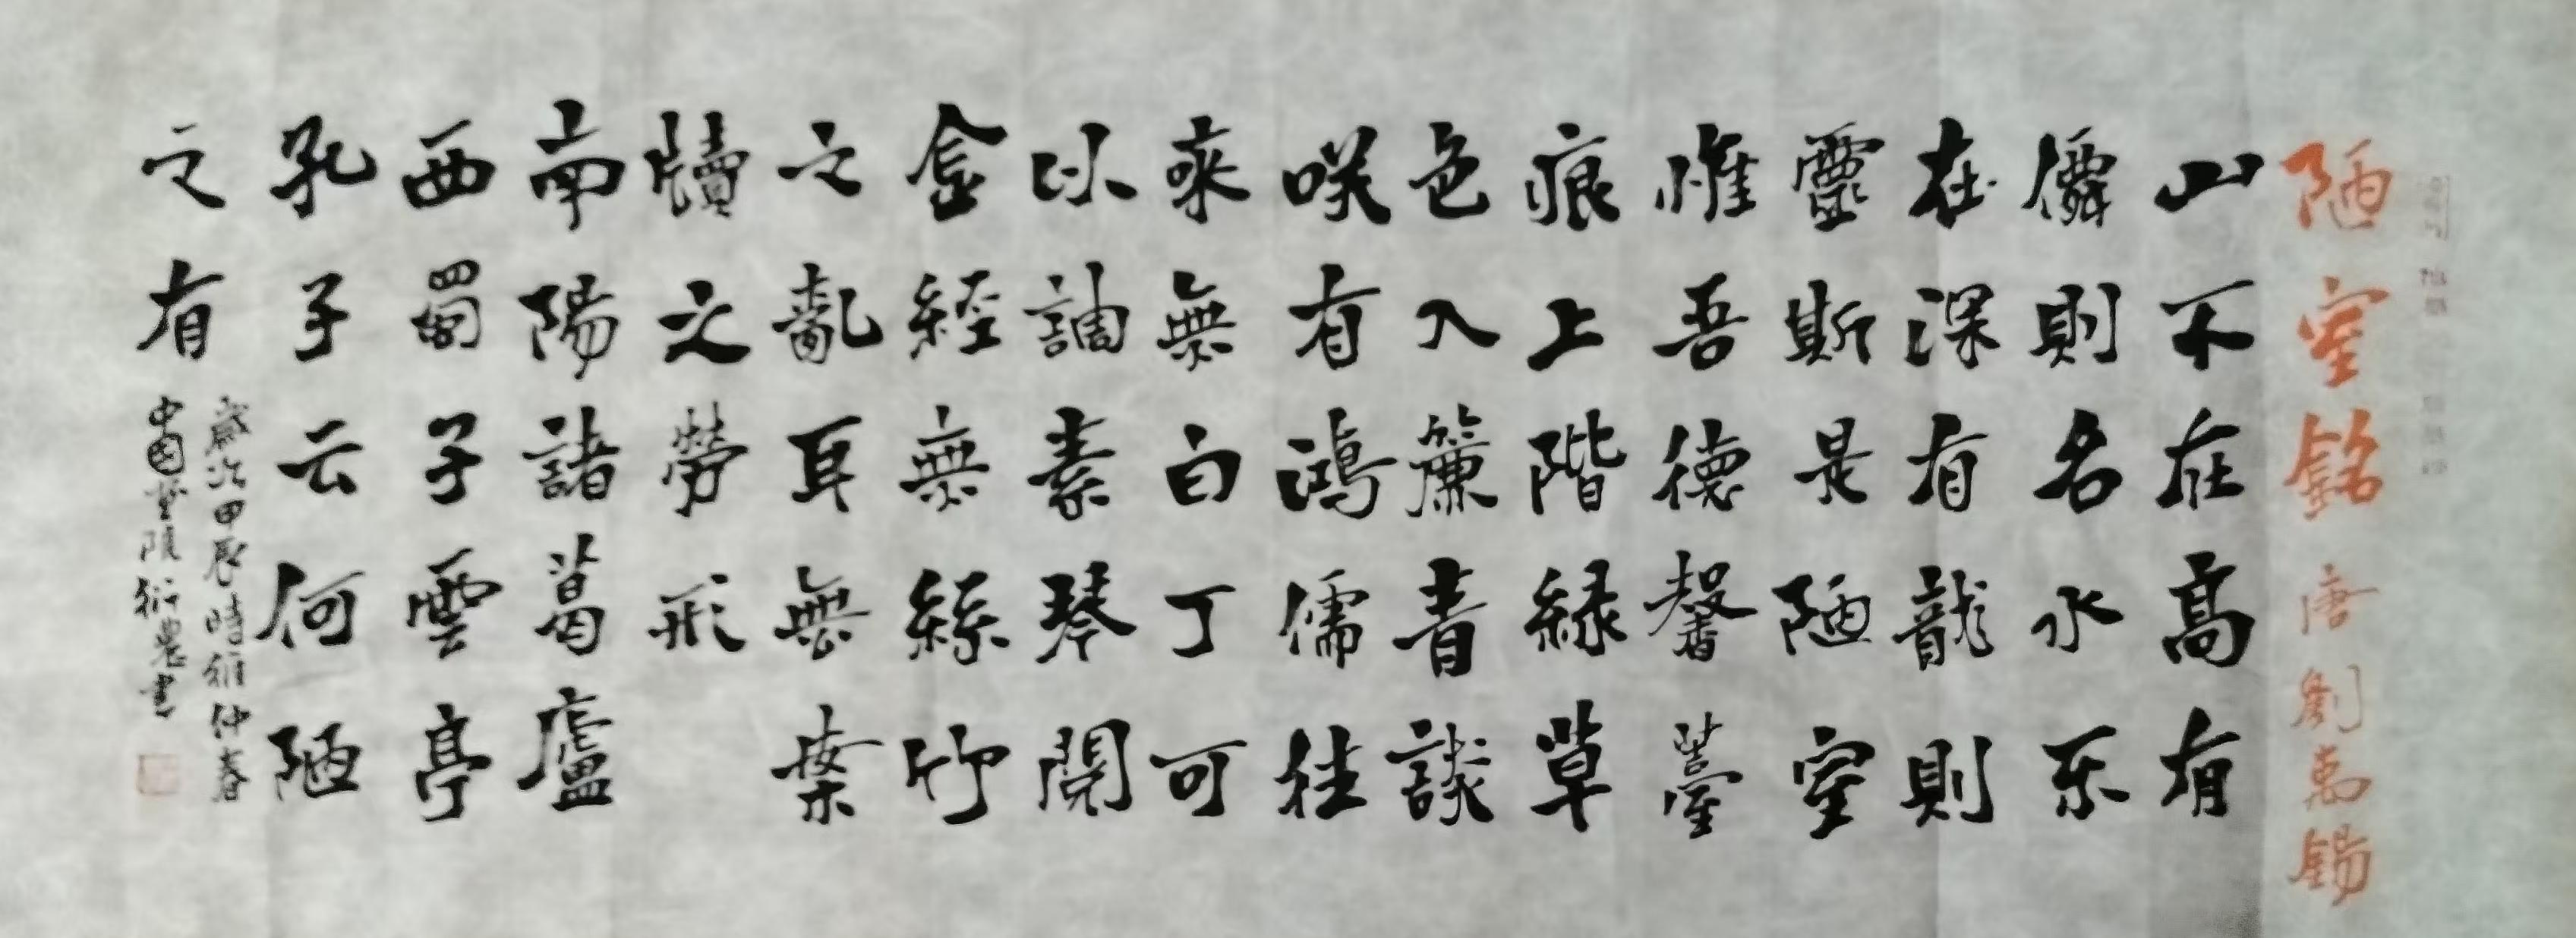 陋室銘 唐 劉禹錫
山不在高有
僊則名水不
在深有龍則
靈斯是陋室
惟吾德馨薹
痕上階緑草
色入簾青談
咲有鴻儒往
來無白丁可
以調素琴閱
金經無絲竹
之亂耳無案
牘之勞形
南陽諸葛廬
西蜀子雲亭
孔子云何陋
之有
歲次甲辰時維仲春
衍農書